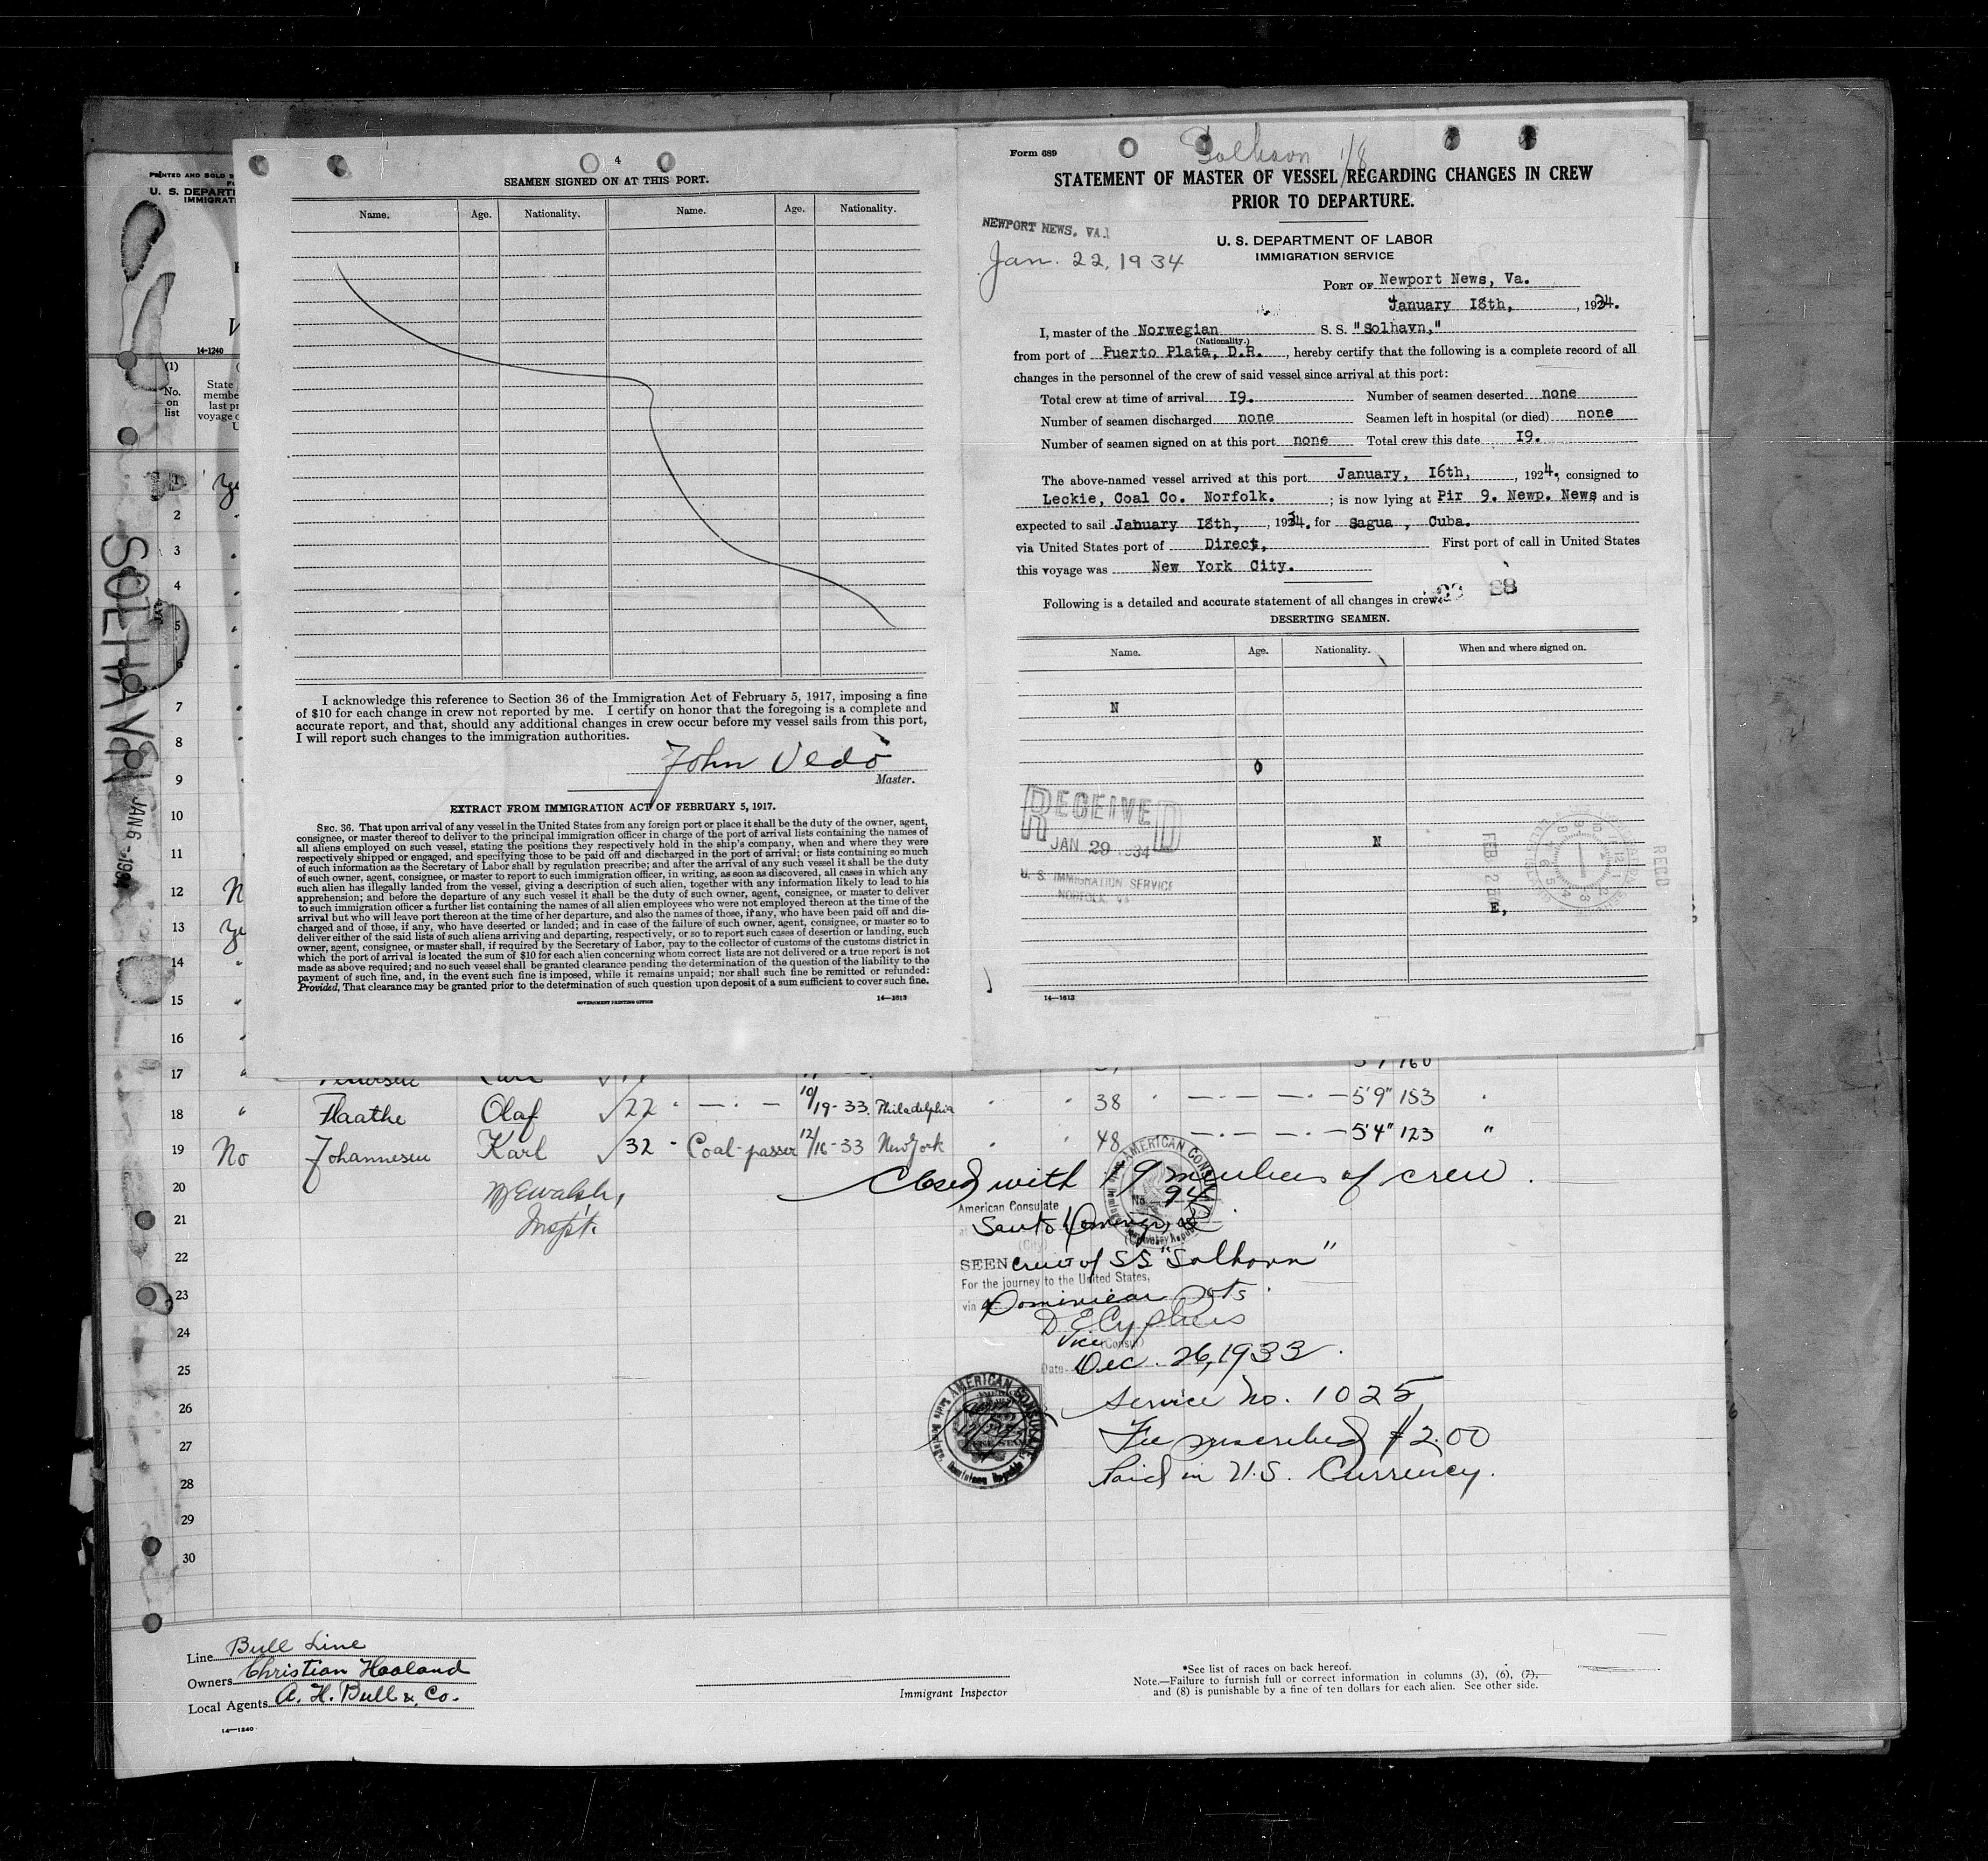 4
SEAMEN SIGNED ON AT THIS PORT.
Name. Age. Nationality. Name. Age. Nationality.
I acknowledge this reference to Section 36 of the Immigration Act of February 5, 1917, imposing a fine
of $10 for each change in crew not reported by me. I certify on honor that the foregoing is a complete and
accurate report, and that, should any additional changes in crew occur before my vessel sails from this port,
I will report such changes to the immigration authorities.
John Vedö
Master.
EXTRACT FROM IMMIGRATION ACT OF FEBRUARY 5, 1917.
SEC. 36. That upon arrival of any vessel in the United States from any foreign port or place it shall be the duty of the owner, agent,
consignee, or master thereof to deliver to the principal immigration officer in charge of the port of arrival lists containing the names of
all aliens employed on such vessel, stating the positions they respectively hold in the ship's company, when and where they were
respectively shipped or engaged, and specifying those to be paid off and discharged in the port of arrival; or lists containing so much
of such information as the Secretary of Labor shall by regulation prescribe; and after the arrival of any such vessel it shall be the duty
of such owner, agent, consignee, or master to report to such immigration officer, in writing, as soon as discovered, all cases in which any
such alien has illegally landed from the vessel, giving a description of such alien, together with any information likely to lead to his
apprehension; and before the departure of any such vessel it shall be the duty of such owner, agent, consignee, or master to deliver
to such immigration officer a further list containing the names of all alien employees who were not employed thereon at the time of the
arrival but who will leave port thereon at the time of her departure, and also the names of those, if any, who have been paid off and dis-
charged and of those, if any, who have deserted or landed; and in case of the failure of such owner, agent, consignee, or master so to
deliver either of the said lists of such aliens arriving and departing, respectively, or so to report such cases of desertion or landing, such
owner, agent, consignee, or master shall, if required by the Secretary of Labor, pay to the collector of customs of the customs district in
which the port of arrival is located the sum of $10 for each alien concerning whom correct lists are not delivered or a true report is not
made as above required; and no such vessel shall be granted clearance pending the determination of the question of the liability to the
payment of such fine, and, in the event such fine is imposed, while it remains unpaid; nor shall such fine be remitted or refunded:
Provided, That clearance may be granted prior to the determination of such question upon deposit of a sum sufficient to cover such fine.
GOVERNMENT PRINTING OFFICE 14—1613
Form 689
1/8
STATEMENT OF MASTER OF VESSEL REGARDING CHANGES IN CREW
PRIOR TO DEPARTURE.
NEWPORT NEWS, VA.
Jan. 22, 1934
U. S. DEPARTMENT OF LABOR
IMMIGRATION SERVICE
PORT OF Newport News, Va.
January 18th, , 1934.
I, master of the Norwegian S. S. "Solhavn,"
(Nationality.)
from port of Puerto Plata, D.R. , hereby certify that the following is a complete record of all
changes in the personnel of the crew of said vessel since arrival at this port:
Total crew at time of arrival 19. Number of seamen deserted none
Number of seamen discharged none Seamen left in hospital (or died) none
Number of seamen signed on at this port none Total crew this date 19.
The above-named vessel arrived at this port January, 16th, , 1924., consigned to
Leckie, Coal Co. Norfolk. ; is now lying at Pir 9. Newp. News and is
expected to sail January 18th, , 1934. for Sagua , Cuba.
via United States port of Direct, First port of call in United States
this voyage was New York City.
Following is a detailed and accurate statement of all changes in crew:
88
DESERTING SEAMEN.
Name. Age. Nationality. When and where signed on.
N
O
N
E,
RECEIVED
JAN 29 1934
U. S. IMMIGRATION SERVICE
NORFOLK, VA
RECD
FEB 2
14—1613
PRINTED AND SOLD
U. S. DEPARTM
IMMIGRAT
14-1240
(1)
No.
on
list
State
membe
last pr
voyage
SOLHAVN
JAN 6 - 1934
1
2
3
4
5
6
7
8
9
10
11
12 N
13
14
15
16
17 160
18 " Flaathe Olaf 22 10/19-33. Philadelphia 38 5'9" 153
19 No Johannesen Karl 32 Coal-passer 12/16-33 New York 48 5'4" 123 "
20
21
22
23
24
25
26
27
28
29
30
Walsh,
Inspt.
Closed with 19 members of crew.
AMERICAN CONSULATE
No. 94
American Consulate
at Santo Domingo,
(City) (Country)
SEEN crew of SS "Solhavn"
For the journey to the United States,
via Dominican Pots.
Vice (Consul)
Date Dec. 26, 1933.
AMERICAN CONSULATE
Dominican Republic
Service No. 1025
Fee prescribed $2.00
Paid in U.S. Currency.
Line Bull Line
Owners Christian Haaland
Local Agents A. H. Bull & Co.
14—1240
Immigrant Inspector
*See list of races on back hereof.
Note.—Failure to furnish full or correct information in columns (3), (6), (7),
and (8) is punishable by a fine of ten dollars for each alien. See other side.